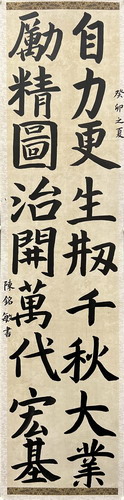 癸卯之夏
自力更生刱千秋大業
勵精圖治開萬代宏基
陳銘敏書